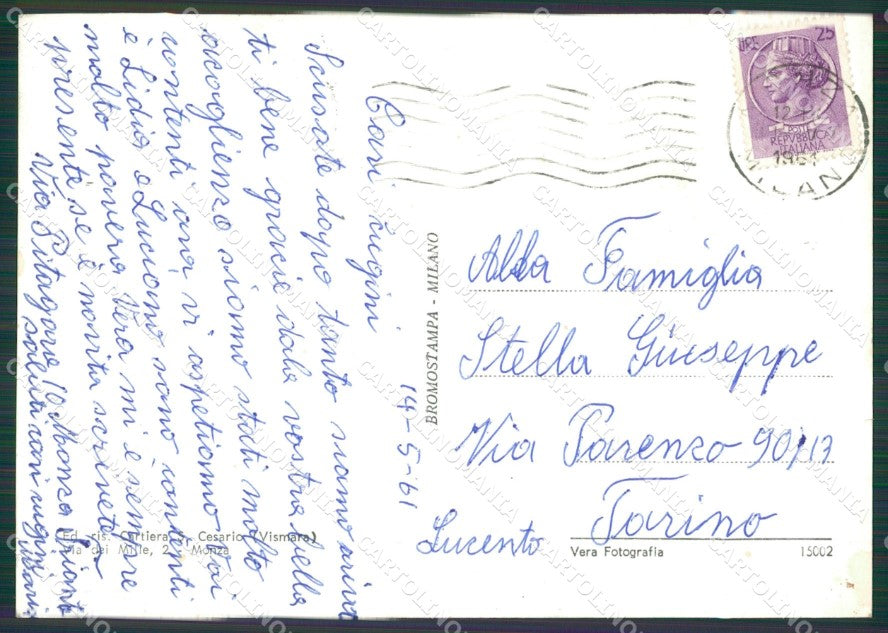 Cari cugini
Scusate dopo tanto siamo ariva
ti bene gracie dela vostra bella
acoglienza siamo stati molto
contenti ora vi aspetiamo voi
e Lidia e Luciano sano contenti
molto povera Vera mi è sempre
presente se è novita scrivete
Via Pitagora 10 Monza
saluti cari cugini
14-5-61
BROMOSTAMPA - MILANO
LIRE 25
POSTE
REPUBBLICA
ITALIANA
12
1961
MILANO
Alla Famiglia
Stella Giuseppe
Via Parenzo 90/13
Torino
Lucento
Ed. ris. Cartiera S. Cesario (Vismara)
Via dei Mille, 2 - Monza
Vera Fotografia
15002
CARTOLINOMANIA